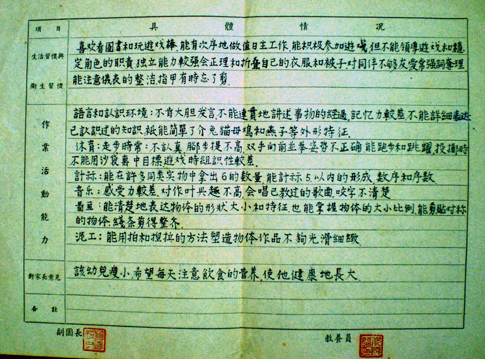 項目 具體情況
生活習慣與衛生習慣
喜欢看圖書和玩遊戏,能有次序地做值日生工作,能积极参加遊戏但不能領導遊戏和穩
定角色的职责独立能力較強会正理和折叠自己的衣服和被子对同伴不够友爱常強詞奪理
能注意儀表的整洁,指甲有時忘了剪。
作業活動能力
語言和认识环境:不肯大胆发言不能連貫地讲述事物的經過,記忆力較差不能詳細
已认識过的知识,祗能简單了介紹貓母鸡和燕子等外形特征.
休育:走步時常不认真,腳步提不高双手向前並拳姿势不正确能跑步和跳躍,投擲時
不能用沙袋專中目標遊戏時組識性較差.
計祘:能在許多同类实物中拿出6的数量,能計祘5.以内的形成数序和序数
音乐:感受力較差,对作叶兴趣不高会唱已教过的歌曲咬字不清楚
能清楚地表达物体的形狀大小和特征,也能掌握物体的大小比例,能剪貼对称
的物体,綫条剪得整齐.
泥工:能用拍和捏拉的方法塑造物体作品不夠光滑細緻
對家長意見
該幼兒瘦小,希望每天注意飲食的营养,使他健康地長大.
備註
副園長 教養員